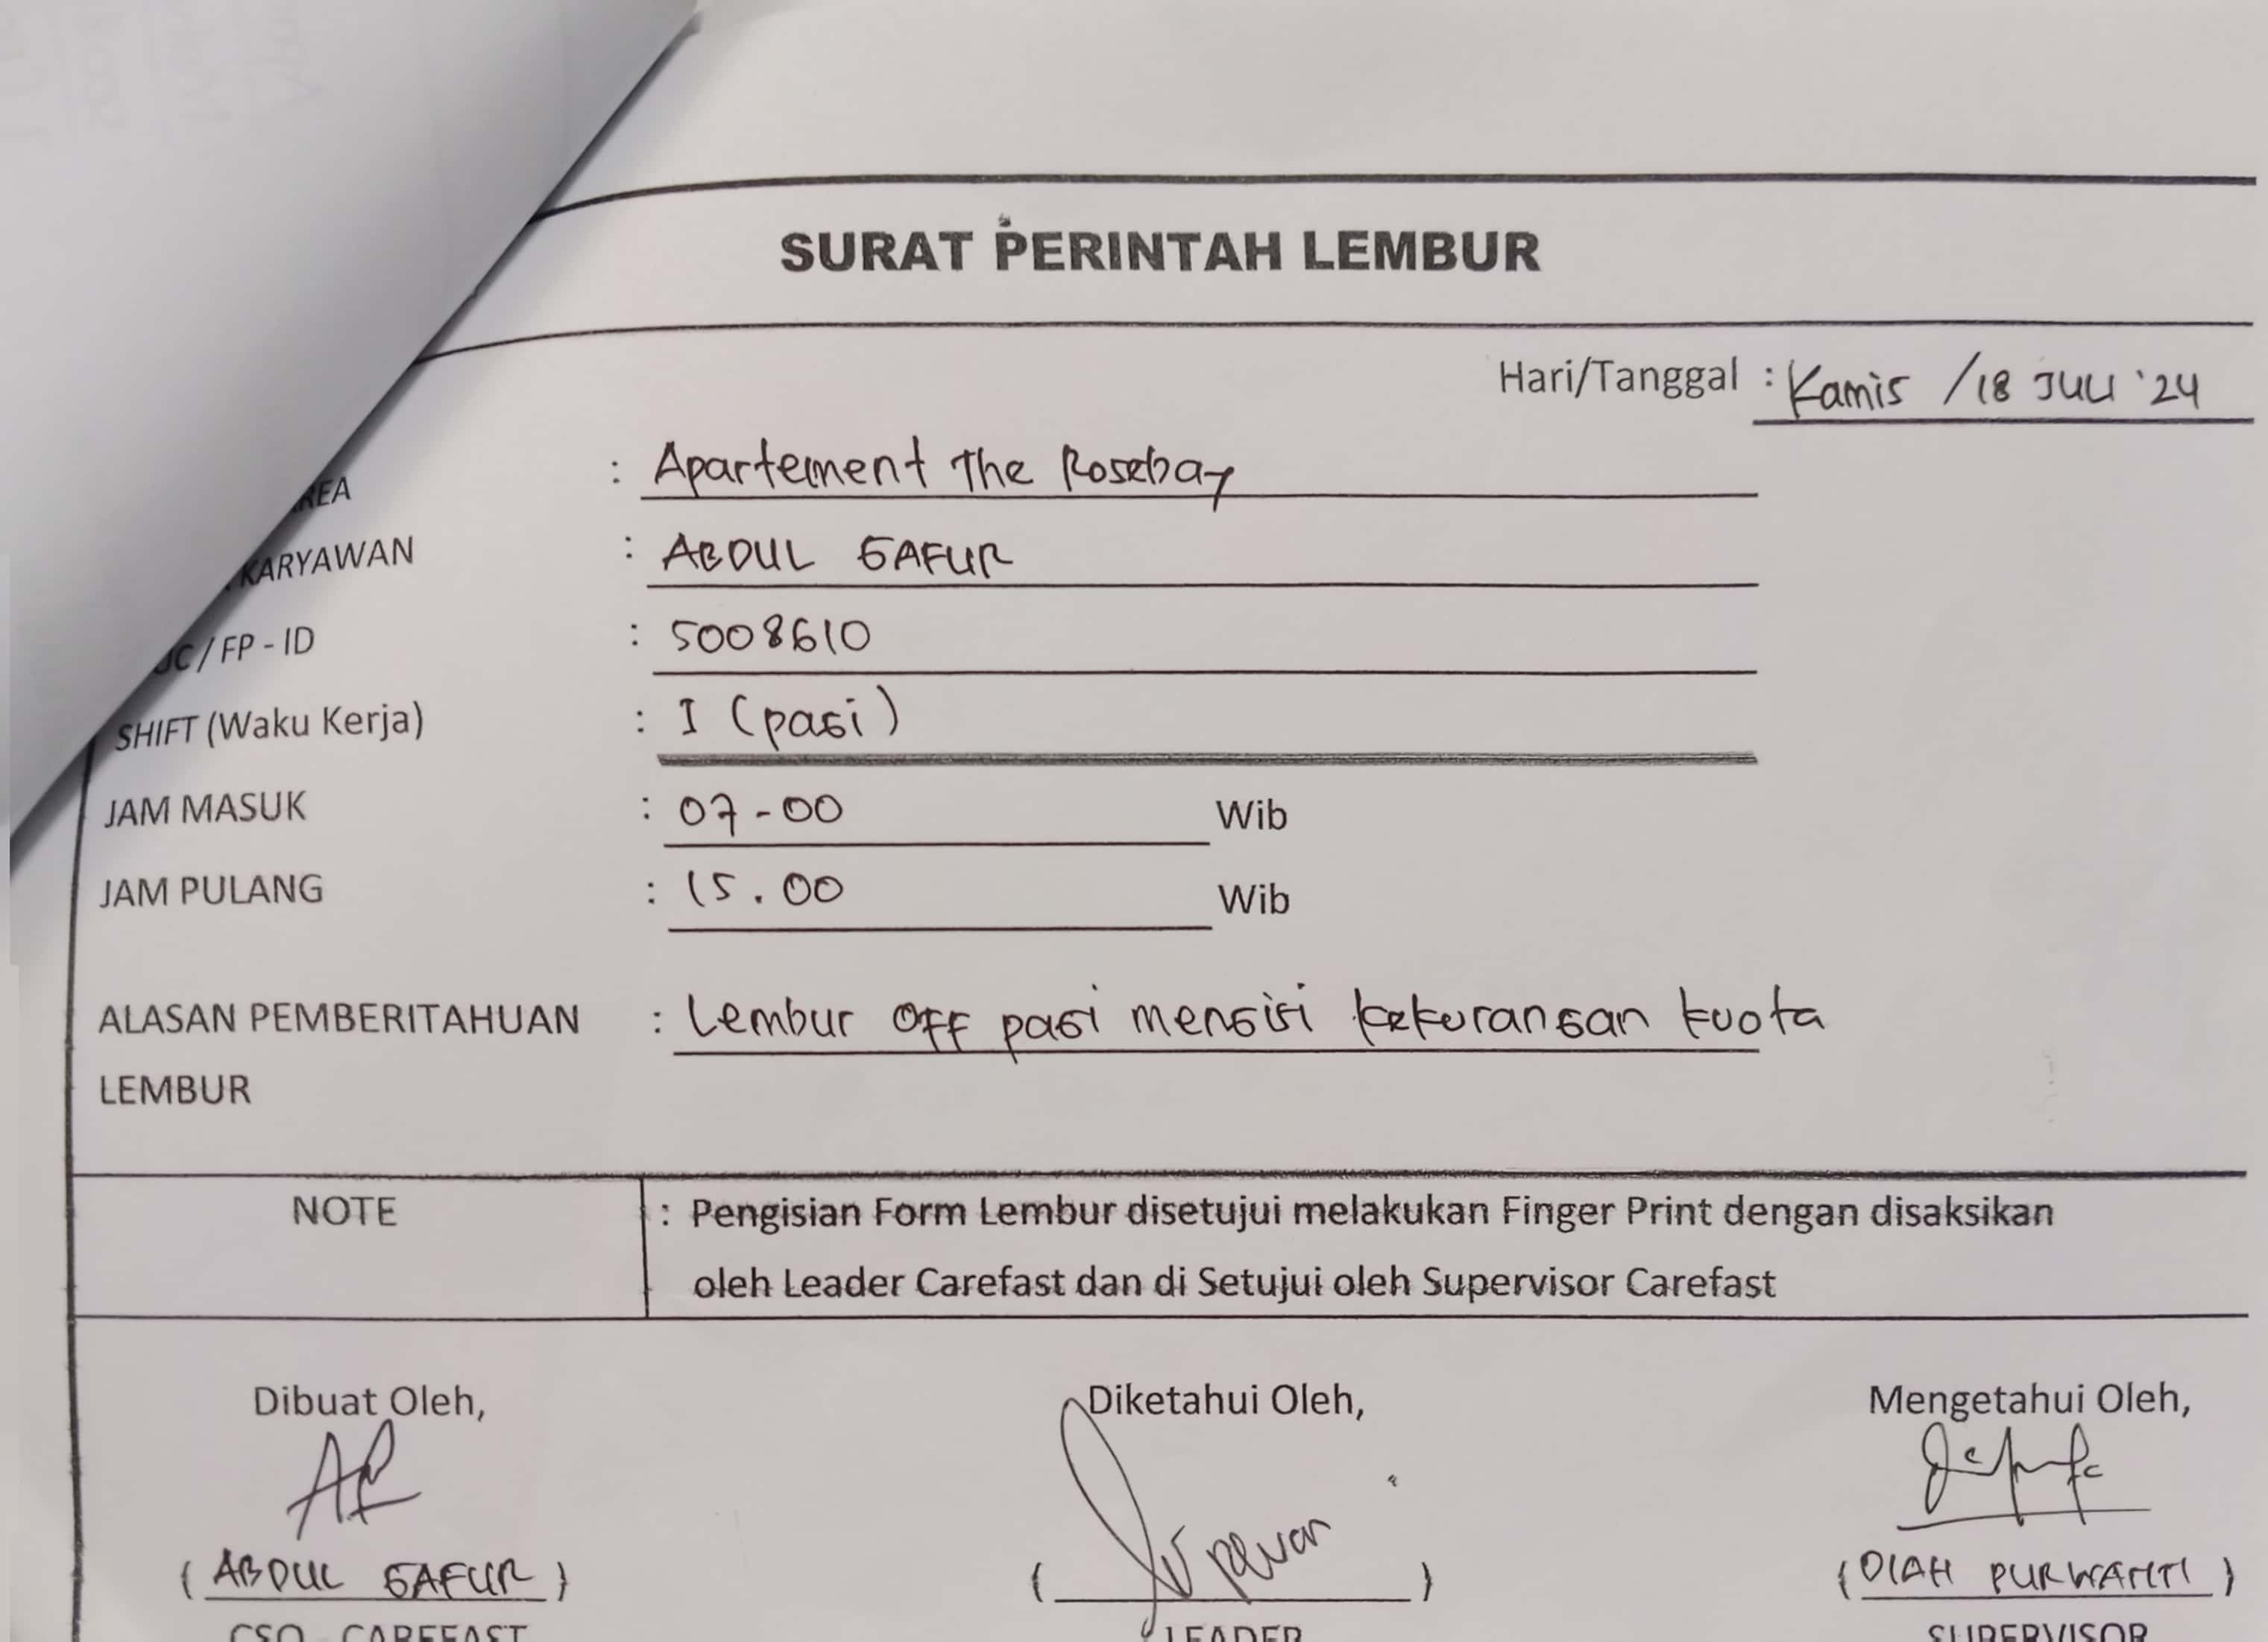 SURAT PERINTAH LEMBUR
Hari/Tanggal : Kamis / 18 JULI '24
: Apartement The Rosebay
KARYAWAN : ABDUL GAFUR
/ FP - ID : 5008610
SHIFT (Waku Kerja) : I (pagi)
JAM MASUK : 07-00 Wib
JAM PULANG : 15.00 Wib
ALASAN PEMBERITAHUAN : Lembur OFF pagi mengisi kekurangan kuota
LEMBUR
NOTE : Pengisian Form Lembur disetujui melakukan Finger Print dengan disaksikan
oleh Leader Carefast dan di Setujui oleh Supervisor Carefast
Dibuat Oleh, Diketahui Oleh, Mengetahui Oleh,
( ABDUL GAFUR ) ( ) ( DIAH PURWANTI )
CSO - CAREFAST LEADER SUPERVISOR